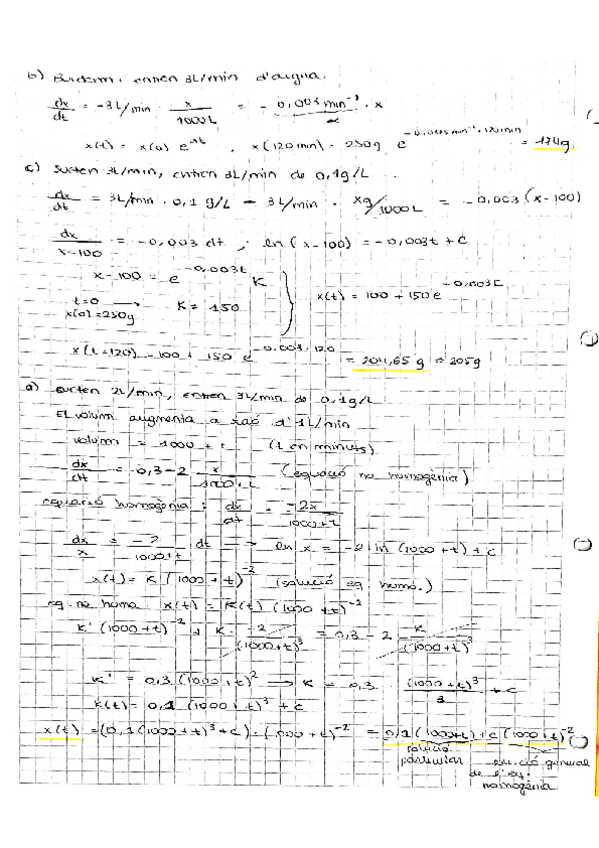 b) Surten i entren 3L/min d'aigua.
dx/dt = -3L/min · x/1000L = -0,003 min⁻¹ · x
x(t) = x(0) e^-αt , x(120min) = 250g e^-0,003min⁻¹·120min = 174g.
c) Surten 3L/min, entren 3L/min de 0,1g/L
dx/dt = 3L/min · 0,1 g/L - 3L/min · xg/1000L = -0,003 (x-100)
dx/x-100 = -0,003 dt ; ln(x-100) = -0,003t + C
x-100 = e^-0,003t K
t=0 → K = 150
x(0)=250g
x(t) = 100 + 150 e^-0,003t
x(t=120) = 100 + 150 e^-0,003·120 = 204,65 g ≈ 205g
d) surten 2L/min, entren 3L/min de 0,1g/L
El volum augmenta a raó d'1L/min
volum = 1000 + t (t en minuts)
dx/dt = 0,3 - 2 x/1000+t (equació no homogènia)
equació homogènia: dx/dt = -2x/1000+t
dx/x = -2/1000+t dt → ln x = -2 ln (1000+t) + c
x(t) = K (1000+t)⁻² (solució eq. homo.)
eq. no homo: x(t) = K(t) (1000+t)⁻²
K' (1000+t)⁻² + K · -2/(1000+t)³ = 0,3 - 2 K/(1000+t)³
K' = 0,3 (1000+t)² → K = 0,3 · (1000+t)³/3 + c
K(t) = 0,1 (1000+t)³ + c
x(t) = (0,1(1000+t)³ + c) · (1000+t)⁻² = 0,1(1000+t) + c (1000+t)⁻²
solució particular
solució general de l'eq. homogènia